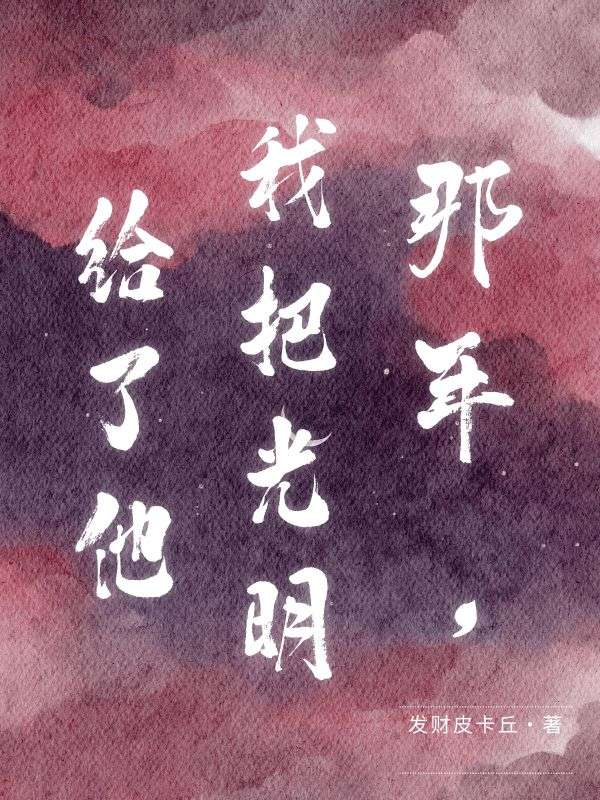 那年，
我把光明
给了他
发财皮卡丘·著